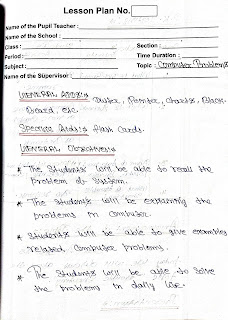 Lesson Plan No.
Name of the Pupil Teacher :
Name of the School :
Class : Section :
Period : Time Duration :
Subject : Topic : Computer Problems
Name of the Supervisor :
General Aids:- Duster, Pointer, Charts, Black-
Board, etc.
Specific Aids:- Flash Cards.
General Objectives:-
* The Students will be able to recall the
Problem of System.
* The Students will be explaining the
problems in Computer.
* Students will be able to give examples
related Computer problems.
* The Students will be able to solve
the problems in daily life.